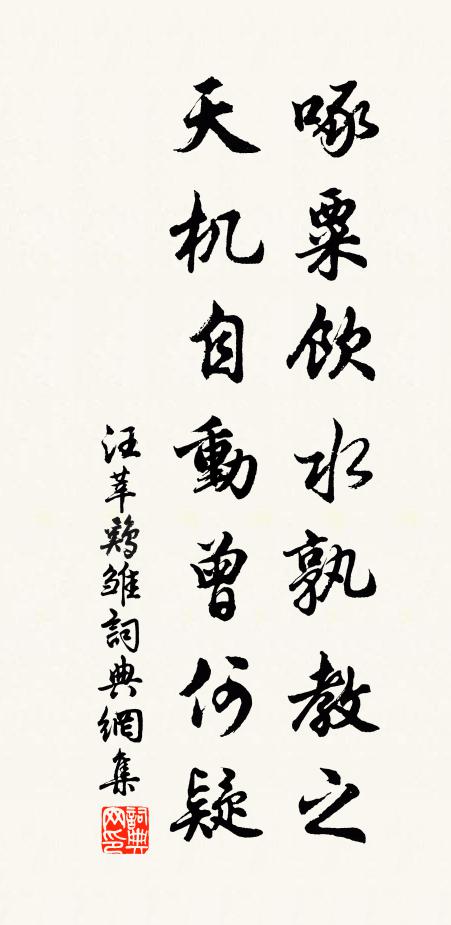 啄粟飲水孰教之
天机自動曾何疑
汪莘鷄雛詞典網集
詞典网印